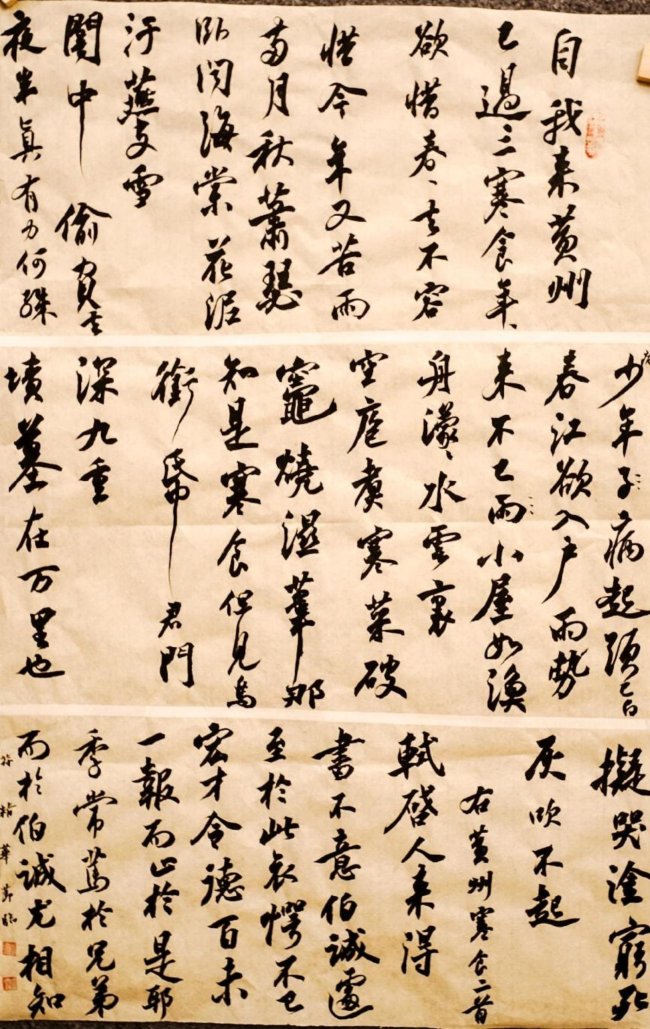 自我来黄州
已過三寒食年、
欲惜春、去不容
惜今年又苦雨
两月秋蕭瑟
卧闻海棠花泥
汙燕支雪
闇中偷負去
夜半真有力何殊
少年子病起頭已白
春江欲入户雨勢
来不已雨小屋如漁
舟濛、水雲裏
空庖煮寒菜破
竈燒濕葦那
知是寒食但見烏
銜帋君門
深九重
墳墓在万里也
擬哭塗窮死
灰吹不起
右黄州寒食二首
軾啓人来得
書不意伯誠遽
至於此哀愕不已
宏才令德百未
一報而止於是耶
季常篤於兄弟
而於伯誠尤相知